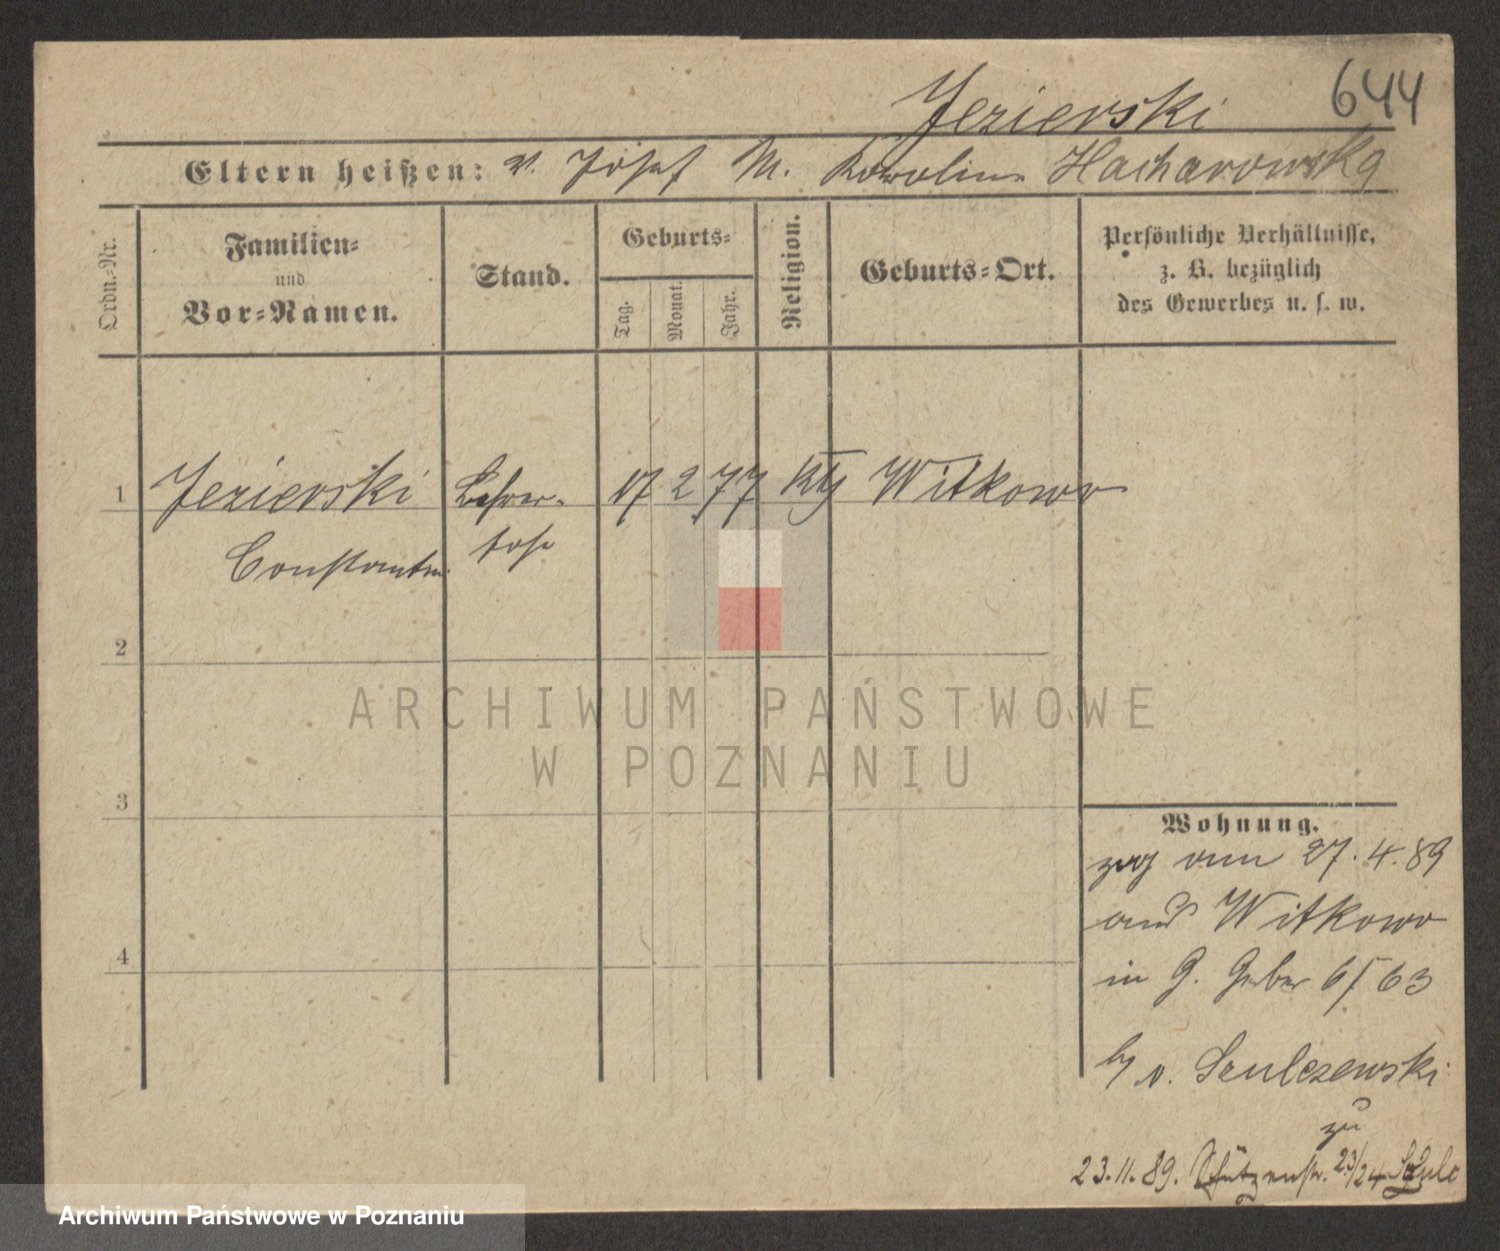 644
Jezierski
Eltern heißen: v. Josef M. Karoline Hacharowska
Ordn.-Nr.
Familien- und Vor-Namen.
Stand.
Geburts-
Tag.
Monat.
Jahr.
Religion.
Geburts-Ort.
Persönliche Verhältnisse,
z. B. bezüglich
des Gewerbes u. s. w.
1 Jezierski Lehrer- 17 2 77 Kth Witkowo
Constantin sohn
2
3
4
Wohnung.
zog am 27.4.89
aus Witkowo
in G. Gerber 6/63
by v. Szulczewski
zu
23.11.89. Schützenstr. 23/24
ARCHIWUM PAŃSTWOWE
W POZNANIU
Archiwum Państwowe w Poznaniu